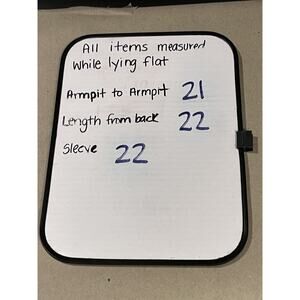 All items measured
While lying flat
Armpit to Armprt 21
Length from back 22
Sleeve 22